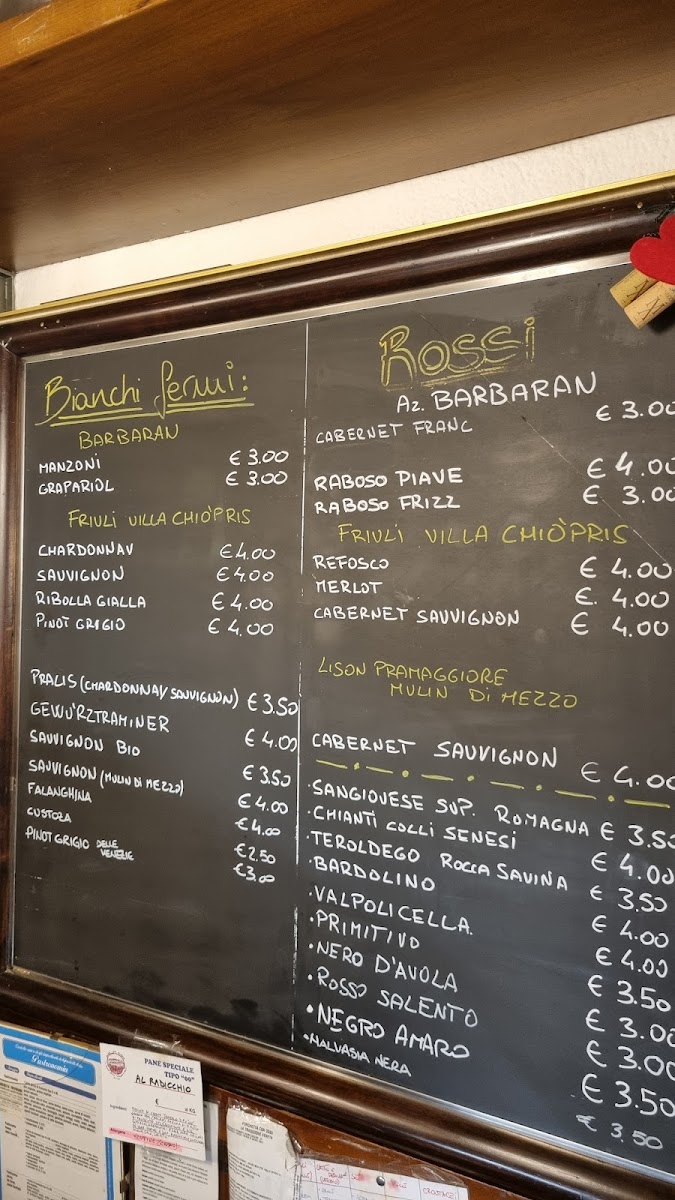 Bianchi fermi:
BARBARAN
MANZONI € 3.00
GRAPARIOL € 3.00
FRIULI VILLA CHIÒPRIS
CHARDONNAY € 4.00
SAUVIGNON € 4.00
RIBOLLA GIALLA € 4.00
PINOT GRIGIO € 4.00
PRALIS (CHARDONNAY SAUVIGNON) € 3.50
GEWÜRZTRAMINER € 4.00
SAUVIGNON BIO € 3.50
SAUVIGNON (MULIN DI MEZZO) € 4.00
FALANGHINA € 4.00
CUSTOZA € 2.50
PINOT GRIGIO DELLE VENEZIE € 3.00
ROSSI
AZ. BARBARAN
CABERNET FRANC € 3.00
RABOSO PIAVE € 4.00
RABOSO FRIZZ € 3.00
FRIULI VILLA CHIÒPRIS
REFOSCO € 4.00
MERLOT €. 4.00
CABERNET SAUVIGNON € 4.00
LISON PRAMAGGIORE
MULIN DI MEZZO
CABERNET SAUVIGNON € 4.00
• SANGIOVESE SUP. ROMAGNA € 3.50
• CHIANTI COLLI SENESI € 4.00
• TEROLDEGO ROCCA SAVINA € 3.50
• BARDOLINO € 4.00
• VALPOLICELLA € 4.00
• PRIMITIVO € 3.50
• NERO D'AVOLA € 3.00
• ROSSO SALENTO € 3.00
• NEGRO AMARO € 3.50
• MALVASIA NERA € 3.50
Gastronomia
PANE SPECIALE
TIPO "00"
AL RADICCHIO
€